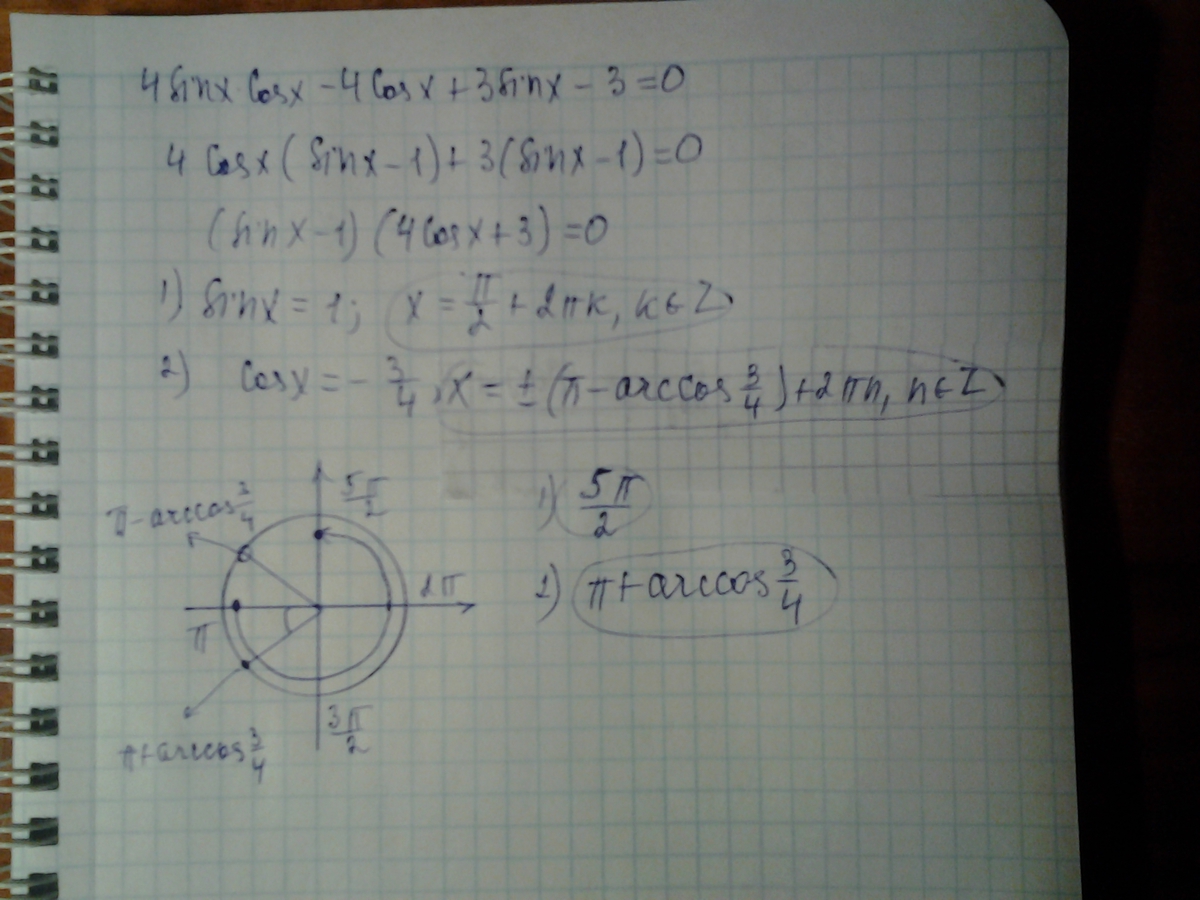 4 sinx cosx - 4 cosx + 3 sinx - 3 = 0
4 cosx ( sinx - 1) + 3(sinx - 1) = 0
(sinx - 1) (4cosx + 3) = 0
1) sinx = 1; x = π/2 + 2πk, k ∈ Z
2) cosx = - 3/4, x = ± (π - arccos 3/4) + 2πn, n ∈ Z
π - arccos 3/4
5π/2
2π
π
3π/2
π + arccos 3/4
1) 5π/2
2) π + arccos 3/4